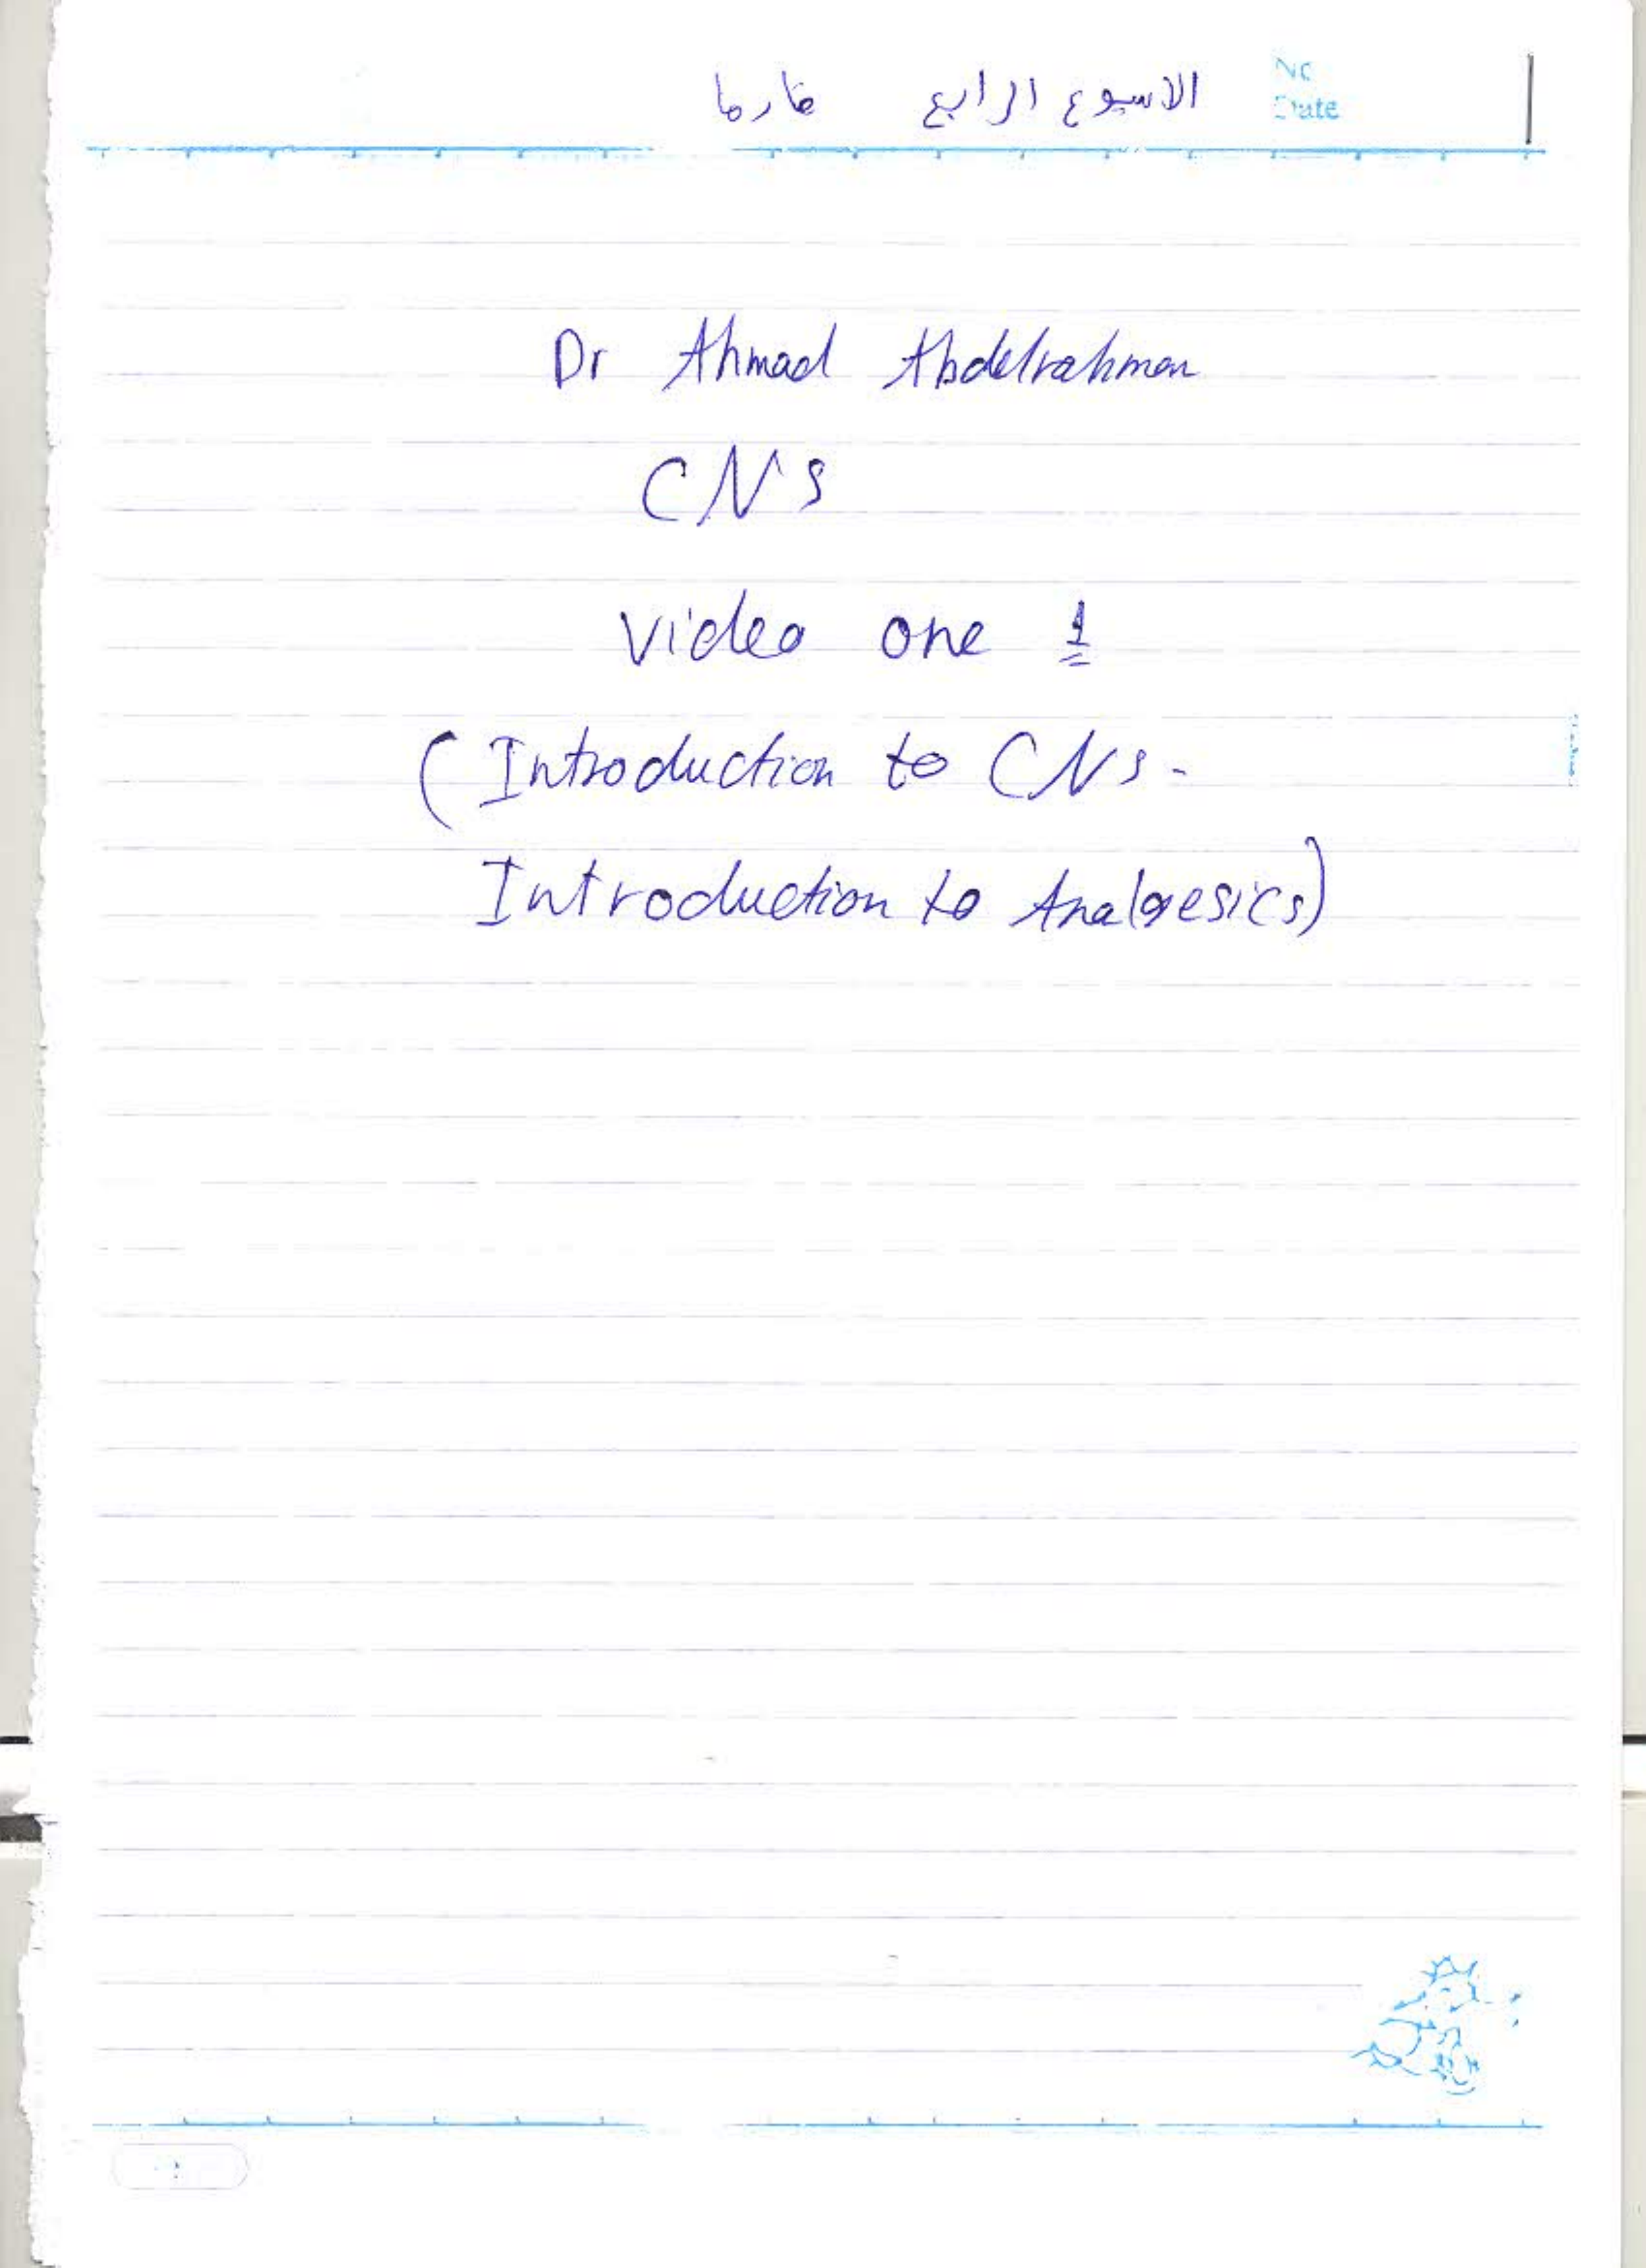 الاسبوع الرابع فارما
No
Date
Dr Ahmad Abdelrahman
CNS
Video one 1
(Introduction to CNS -
Introduction to Analgesics)